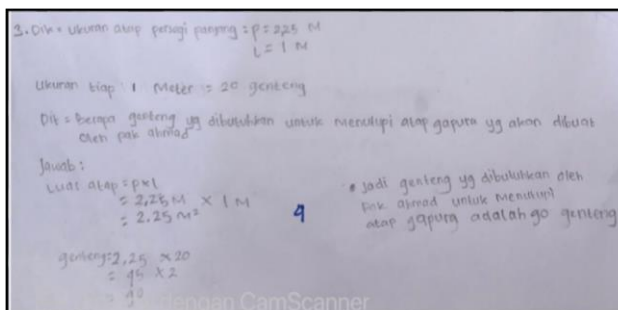 3. Dik = Ukuran atap persegi panjang : P = 2,25 M
L = 1 M
Ukuran tiap 1 Meter = 20 genteng
Dit = Berapa genteng yg dibutuhkan untuk menutupi atap gapura yg akan dibuat
oleh pak ahmad
Jawab :
Luas atap = p x l
= 2,25 M x 1 M
= 2.25 M²
genteng = 2,25 x 20
= 45 x 2
= 90
9
• Jadi genteng yg dibutuhkan oleh
Pak ahmad untuk menutupi
atap gapura adalah 90 genteng
dengan CamScanner